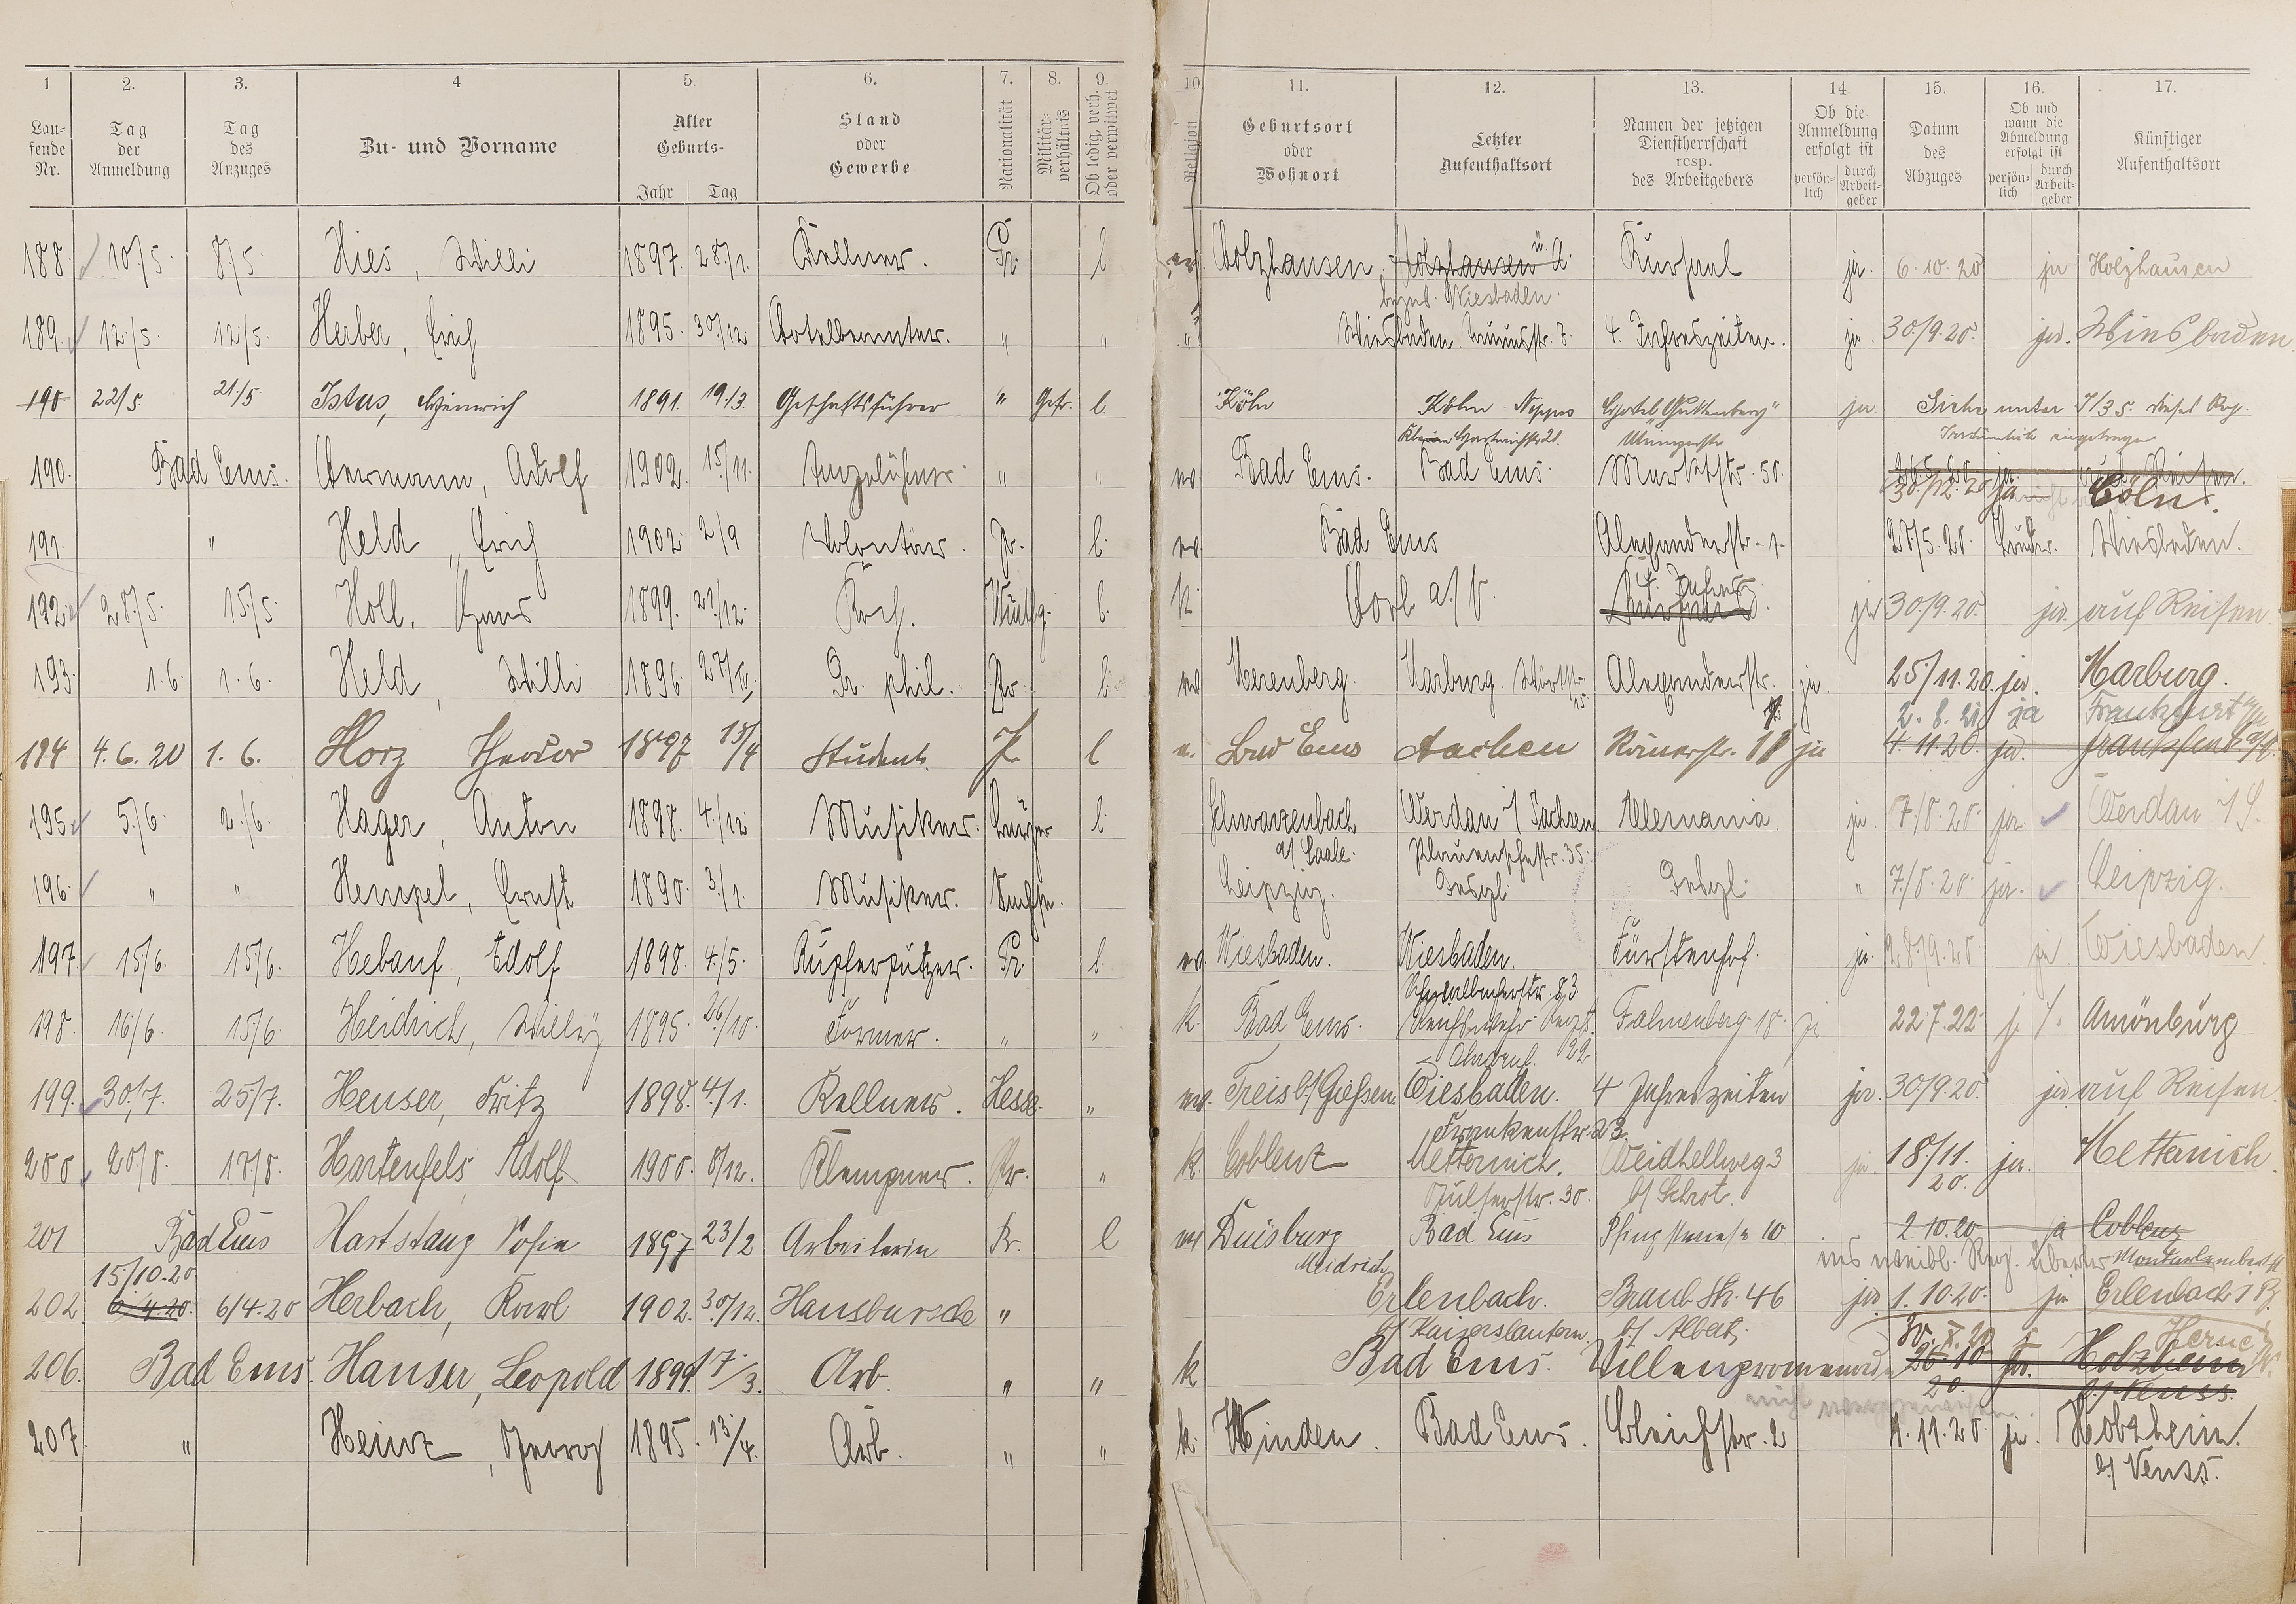 1 2. 3. 4 5. 6. 7. 8. 9. 10 11. 12. 13. 14. 15. 16. 17.
Laufende Nr. Tag der Anmeldung Tag des Anzuges Zu- und Vorname Alter Geburts- Jahr Tag Stand oder Gewerbe Nationalität Militärverhältnis Ob ledig, verh. oder verwitwet Religion Geburtsort oder Wohnort Letzter Aufenthaltsort Namen der jetzigen Dienstherrschaft resp. des Arbeitgebers Ob die Anmeldung erfolgt ist persönlich durch Arbeitgeber Datum des Abzuges Ob und wann die Abmeldung erfolgt ist persönlich durch Arbeitgeber Künftiger Aufenthaltsort
188. 10/5. 8/5. Hies, Willi 1897. 28/1. Kellner. Pr. l. ev. Holzhausen, Holzhausen ü. A. Kursaal ja. 6.10.20 ja Holzhausen
bezw. Wiesbaden.
189. 12./5. 12/5. Herber, Erich 1895. 30/12 Hotelbeamter. " " " Wiesbaden. 4. Jahreszeiten. ja. 30/9.20. ja. Wiesbaden.
190 22/5. 21./5 Istas, Heinrich 1891. 19./3. Geschäftsführer " Gefr. l. Köln Köln-Nippes Hotel "Guttenberg" ja. Siehe unter J/35.
Irrtümlich eingetragen
190. Bad Ems. Hermann, Adolf 1902. 15/11. " " ev. Bad Ems. Bad Ems. Marktstr. 50. 30./12.20 ja Cöln.
191. " Held, Erich 1902. 2/9 Volontär. Pr. l. ev. Bad Ems Alexanderstr. 1. 27/5.20. Wiesbaden.
192. 28/5. 15/5. Holl, Hans 1899. 27./12. Koch. l. k. Horb a./N. 4. Jahresz. Kursaal ja 30/9.20. ja. auf Reisen.
193. 1.6. 1.6. Held, Willi 1896. Dr. phil. Pr. l. ev Marburg. Alexanderstr. ja. 25./11.20. ja. Marburg.
2.8.21 ja Frankfurt a/M
194 4.6.20 1.6. Horz Theodor 1897 13/4 Student P. l e. Bad Ems Aachen Römerstr. ja 4.11.20. ja. Frankfurt a/M.
195. 5./6. 2./6. Hager, Anton 1898. 4./12. Musiker. l. Schwarzenbach Werdau i/ Sachsen. Alemania. ja. 7/8.20. ja. Werdau i/S.
a/ Saale. Plauenschestr. 35.
196. " " Hempel, Ernst 1890. 3./1. Musiker. Sachse. Leipzig. Desgl. Desgl. " 7./8.20 ja. Leipzig.
197. 15/6. 15/6. Hebauf, Adolf 1898. 4/5. Kupferputzer. Pr. l. ev. Wiesbaden. Wiesbaden. Fürstenhof. ja. 28/9.20 ja Wiesbaden.
Schwalbacherstr. 83.
198. 16/6. 15/6. Heidrich, Willÿ 1895. 26/10. Former. " " k. Bad Ems. Fahnenberg 18. ja 22.7.22 Amönburg
199. 30./7. 25/7. Heuser, Fritz 1898. 4./1. Kellner. Hesse. " ev. Treis b/ Gießen. Wiesbaden. 4 Jahreszeiten ja. 30/9.20. ja auf Reisen.
Frankenstr. 23.
200 20./8. 17/8. Hartenfels, Adolf 1900. 8/12. Klempner. Pr. " k. Coblenz Metternich. Weidhellweg 3 ja. 18/11. 20. ja. Metternich
30. b/ Schrot.
201 Bad Ems Hartstang Sofie 1897 23/2 Arbeiterin Pr. l ev Duisburg Bad Ems Pfingstwiese 10 2.10.20 ja Coblenz
Meidrich ins weibl. Reg.
15/10.20.
202. 6/4.20. 6/4.20 Herbach, Karl 1902. 30/12. Hausbursche " Erlenbach. Braub. Str. 46 ja 1.10.20. ja Erlenbach
b/ Kaiserslautern. b/ Albert. Herne
206. Bad Ems. Hanser, Leopold 1899. 17/3. Arb. " " k. Bad Ems. Villenpromenade 30.X.20 26.10 20. ja. Holzheim
b./ Neuss.
207. " Heinz, Georg 1895. 13/4. Arb. " " k. Winden. Bad Ems. Bleichstr. 2 4.11.20. ja. Holzheim.
b/ Neuss.